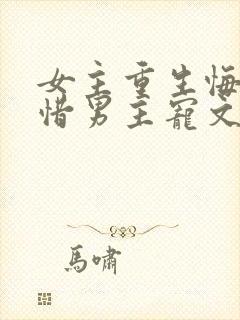 女主重生悔
惜男主寵文
馬嘯